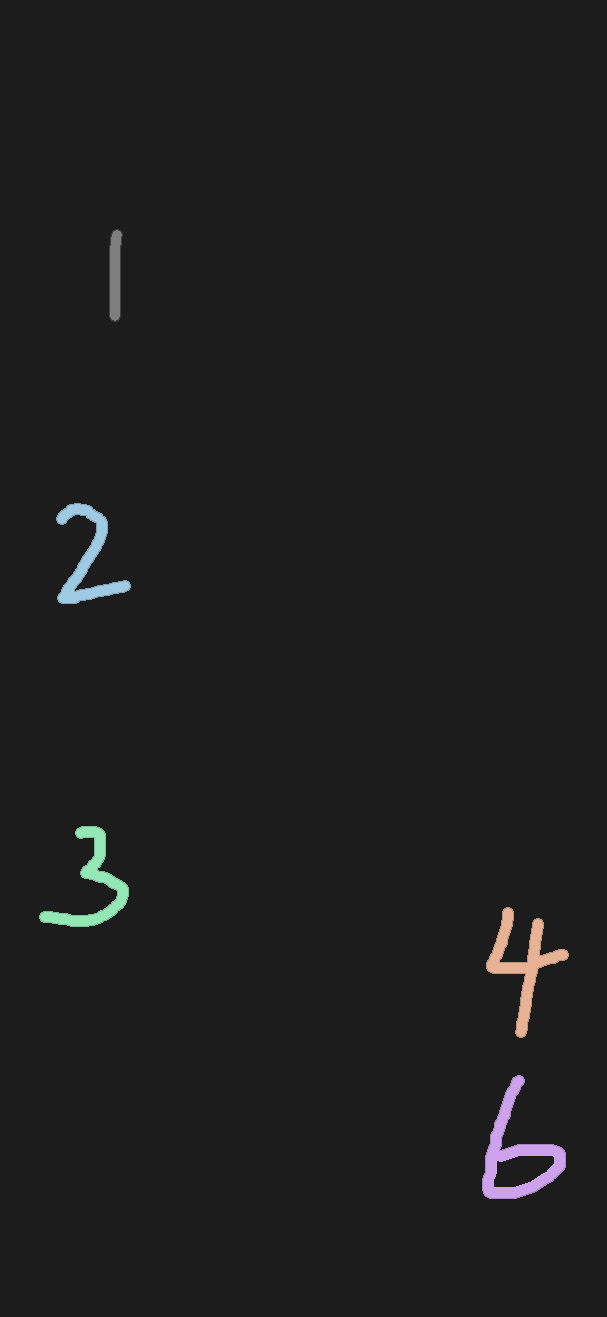 1
2
3
4
6